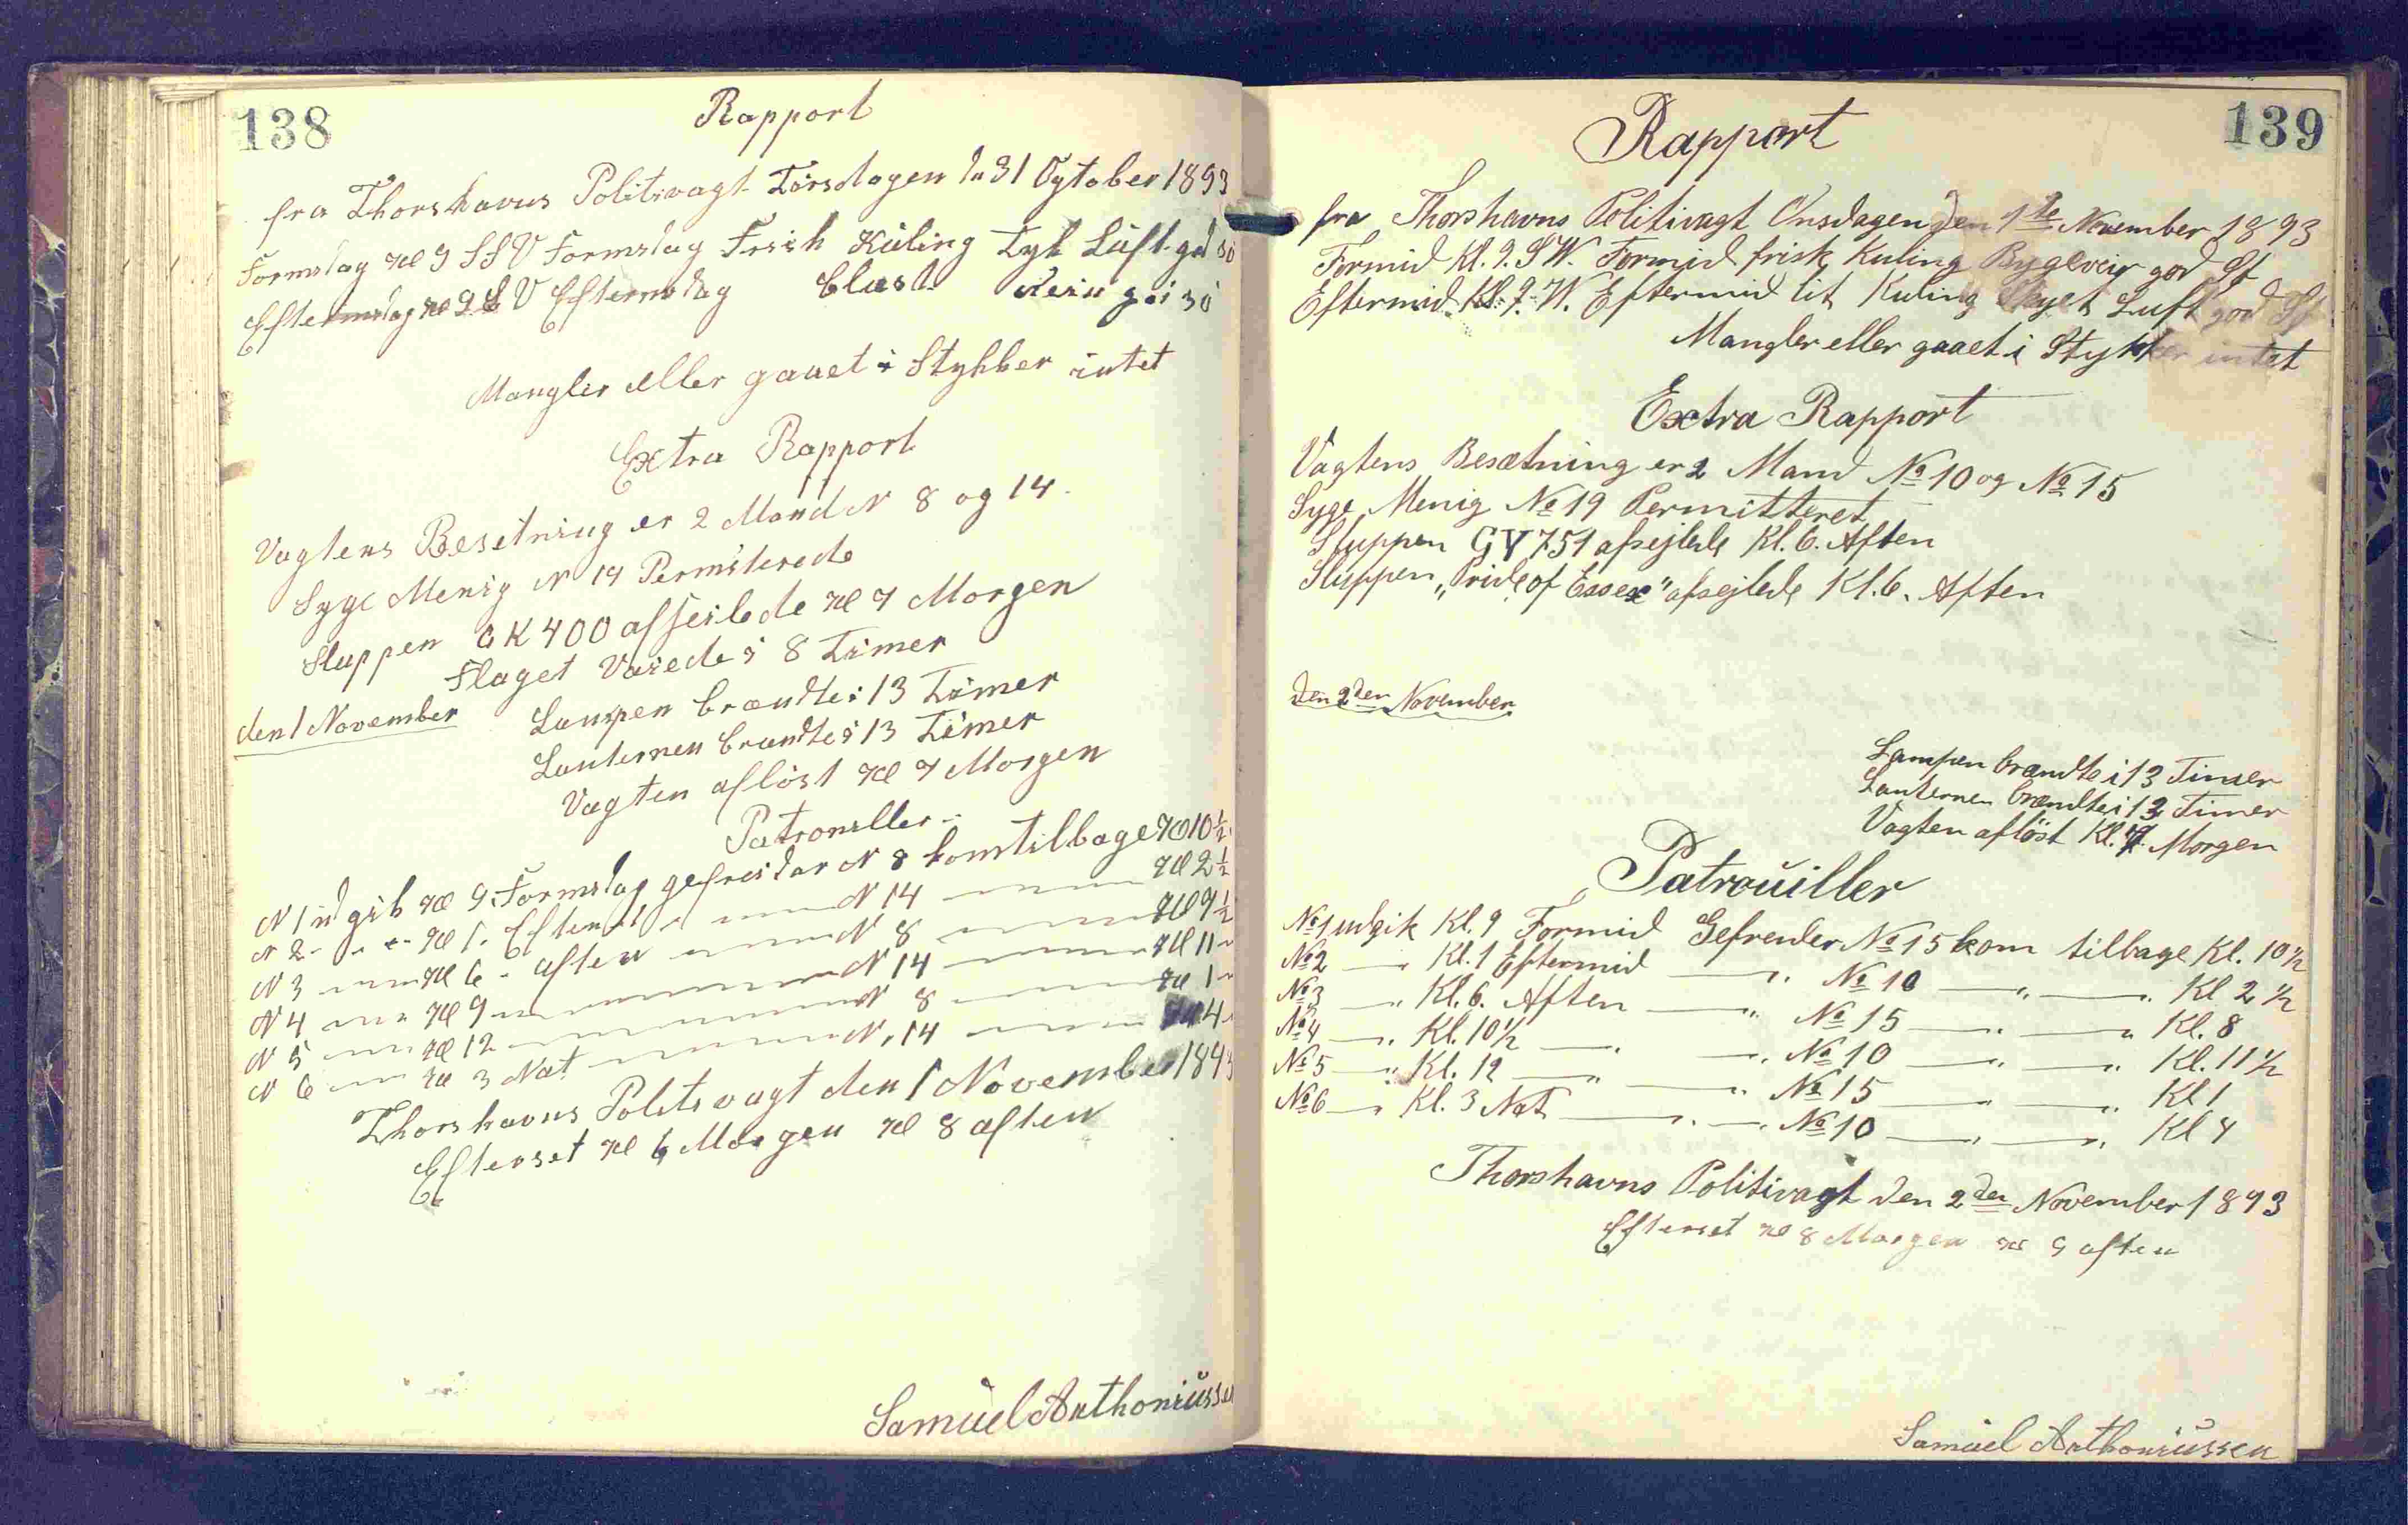 138
Rapport
fra Thorshavns Politivagt Tirsdagen d 31 Ogtober 1893
Formdag Kl 9 SSV Formdag Frisk Kuling Tyk Luft god
Eftermdag Kl 9 V Eftermdag Blæst
Mangler eller gaaet i Stykker intet
Extra Rapport
Vagtens Besetning er 2 Mand N 8 og 14
Syge Menig N 19 Permiterede
Sluppen GK 400 affeilede Kl 7 Morgen
Flaget Vaiede i 8 Timer
den 1 November Lampen brændte i 13 Timer
Lanternen brændte i 13 Timer
Vagten afløst Kl 7 Morgen
Patrouiller
N 1 udgik Kl 9 Formdag gefreidar N 8 kom tilbage Kl 10½
N 2 - " - Kl 1. Efterm N 14 Kl 2½
N 3 Kl 6 - aften N 8 Kl 9½
N 4 Kl 9 N 14 Kl 11
N 5 Kl 12 N 8 Kl 1
N 6 Kl 3 Nat N. 14 4
Thorshavns Politivagt den 1 November 1893
Efterset Kl 6 Morgen Kl 8 aften
Samuel Anthoniussen
139
Rapport
fra Thorshavns Politivagt Onsdagen den 1te November 1893
Formid Kl. 9. SW. Formid frisk Kuling Bygeveir god St
Eftermid Kl. 9. W. Eftermid lit Kuling Skyet Luft god St
Mangler eller gaaet i Stykker intet
Extra Rapport
Vagtens Besætning er 2 Mand No 10 og No 15
Syge Menig No 19 Permitteret
Sluppen GY 751 afsejlede Kl. 6. Aften
Sluppen „Pride of Essex" afsejlede Kl. 6. Aften
Den 2den November
Lampen brændte i 13 Timer
Lanternen brændte i 13 Timer
Vagten afløst Kl. 7. Morgen
Patrouiller
No 1 udgik Kl. 9 Formid Gefreider No 15 kom tilbage Kl. 10½
No 2 — " Kl. 1 Eftermid — " No 10 — " — " Kl 2½
No 3 — " Kl. 6. Aften — " No 15 — " — " Kl. 8
No 4 — " Kl. 10½ — " — " No 10 — " — " Kl. 11½
No 5 — " Kl. 12 — " — " No 15 — " — " Kl 1
No 6 — " Kl. 3 Nat — " — " No 10 — " — " Kl 4
Thorshavns Politivagt den 2den November 1893
Efterset Kl 8 Morgen Kl 9 aften
Samuel Anthoniussen